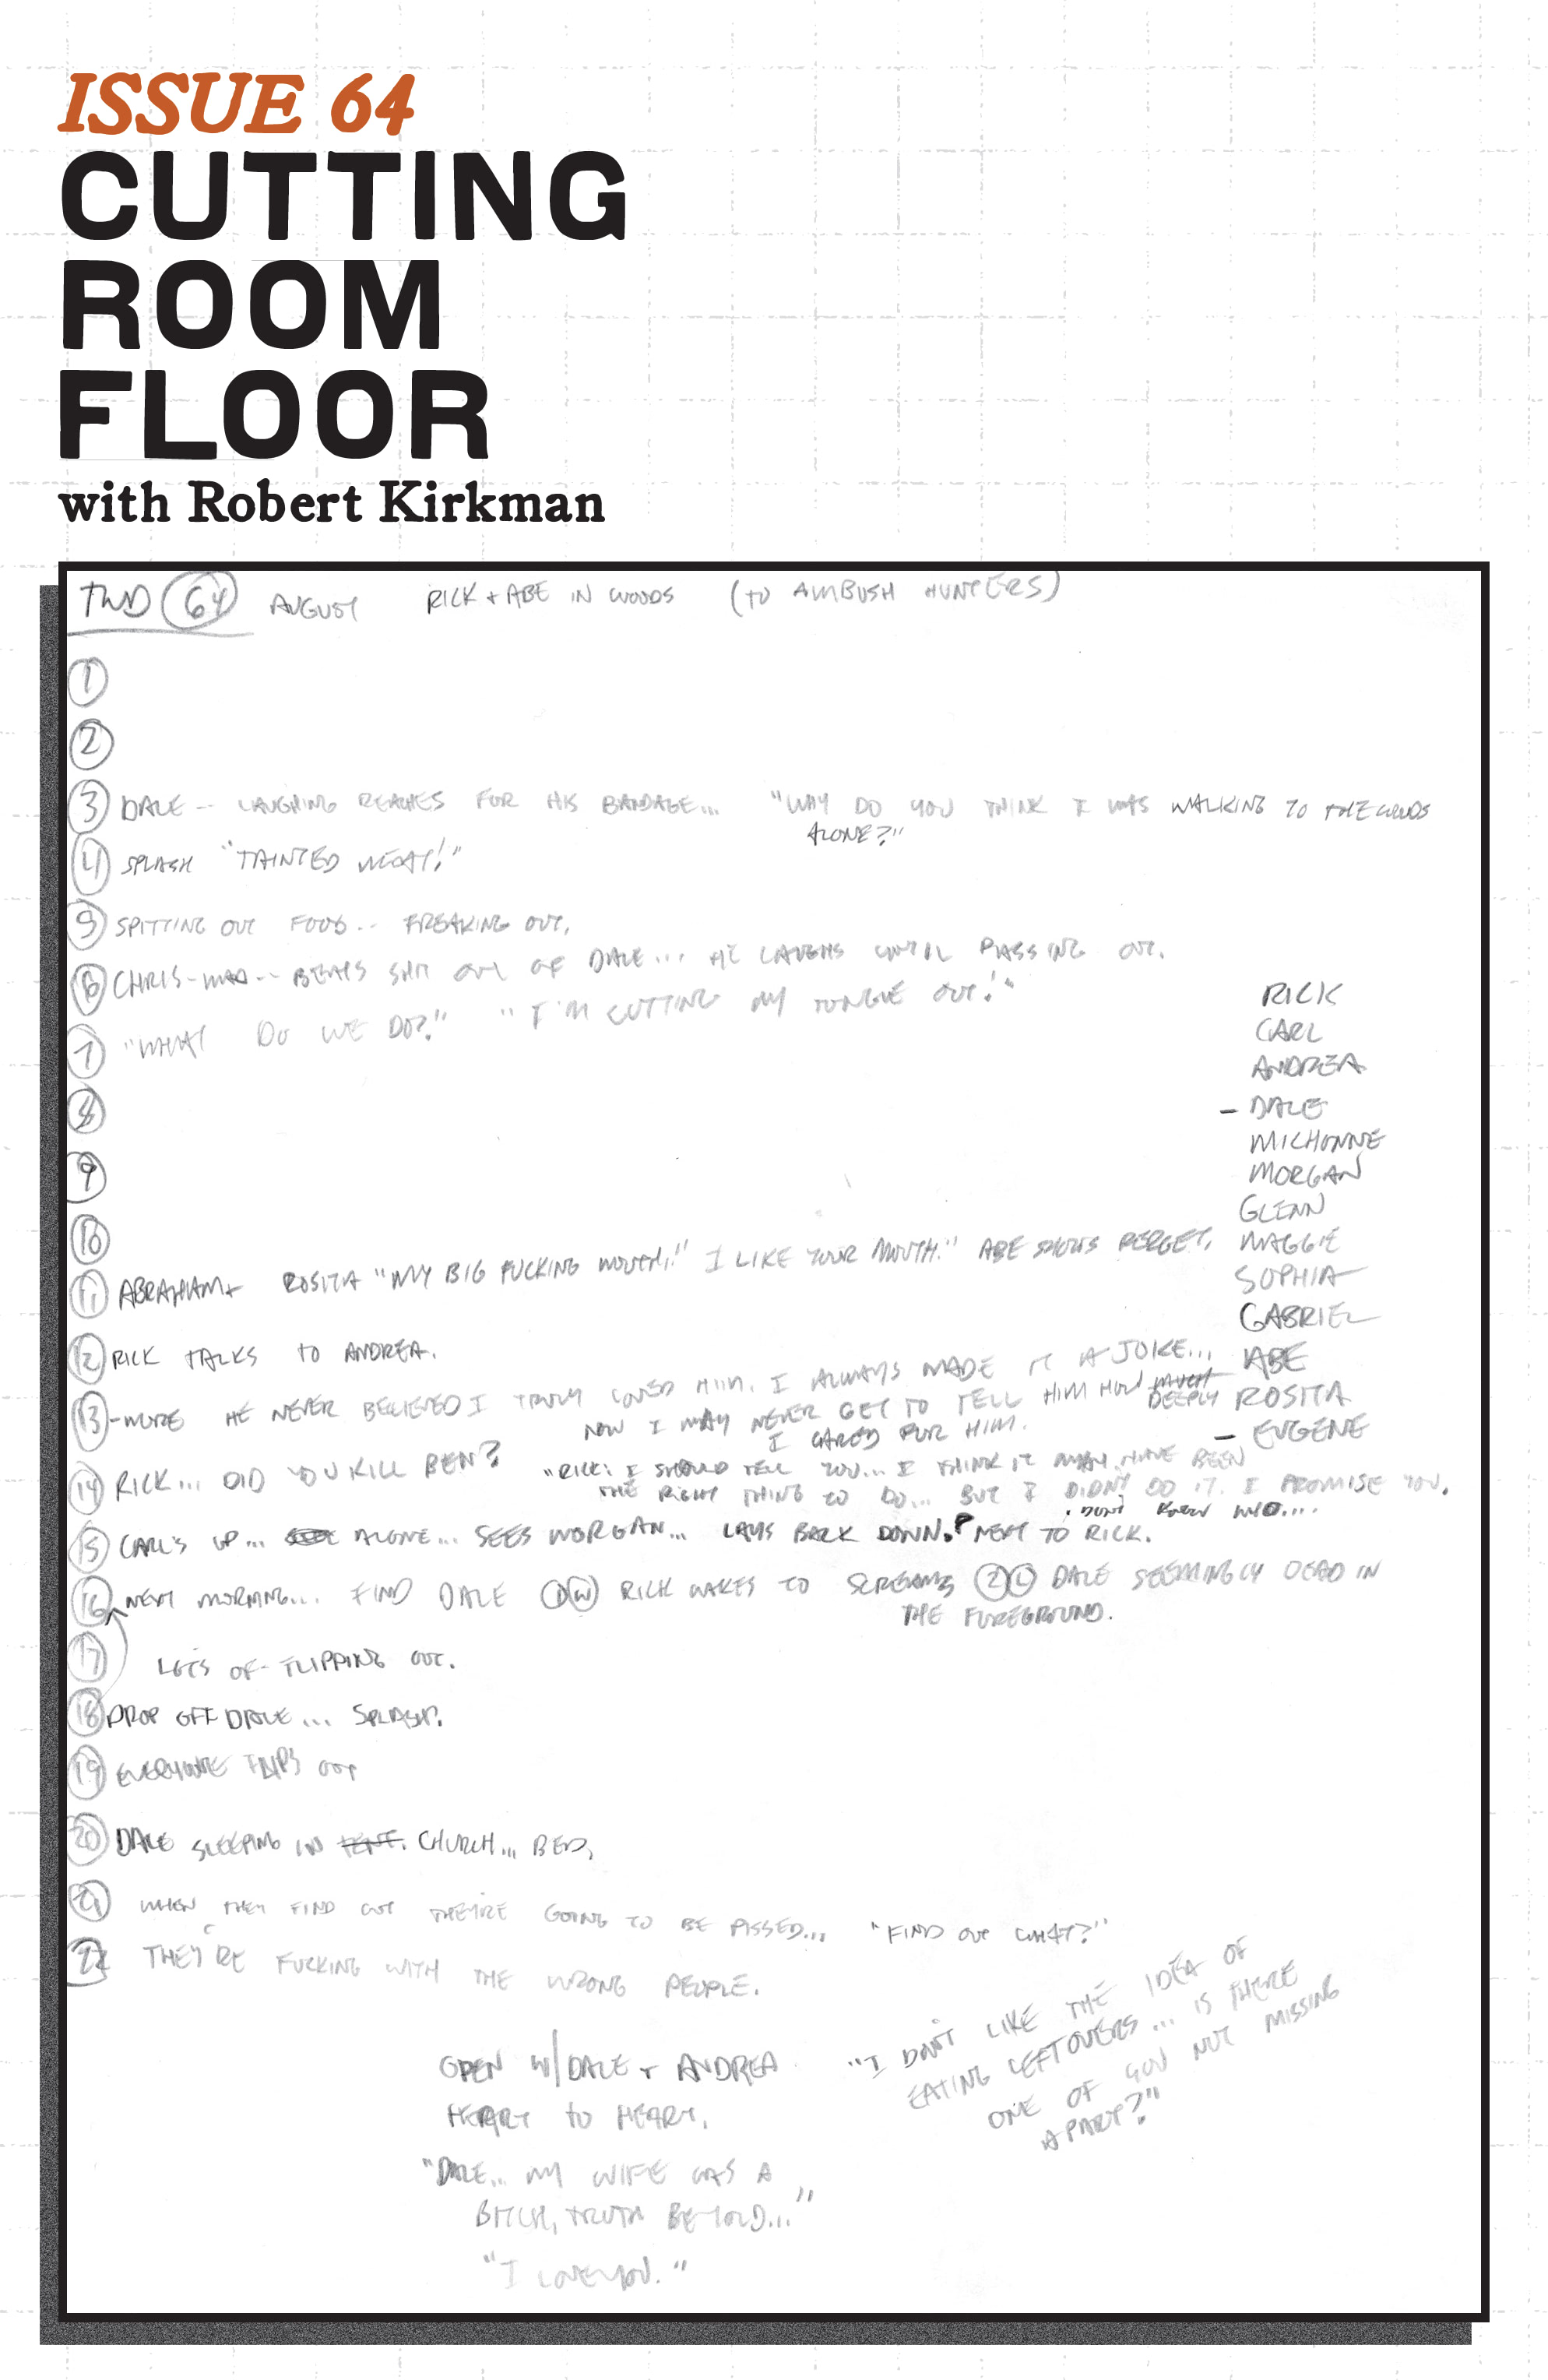 ISSUE 64
CUTTING
ROOM
FLOOR
with Robert Kirkman
TWD 64 AUGUST RICK + ABE IN WOODS (TO AMBUSH HUNTERS)
1
2
3 DALE -- LAUGHING REACHES FOR HIS BANDAGE... "WHY DO YOU THINK I WAS WALKING TO THE WOODS
ALONE?"
4 SPLASH "TAINTED MEAT!"
5 SPITTING OUT FOOD.. FREAKING OUT,
6 CHRIS-MAD-- BEATS SHIT OUT OF DALE... HE LAUGHS UNTIL PASSING OUT.
7 "WHAT DO WE DO?" "I'M CUTTING MY TONGUE OUT!"
8
9
10
11 ABRAHAM + ROSITA "MY BIG FUCKING MOUTH!" I LIKE YOUR MOUTH." ABE SHOWS REGRET,
12 RICK TALKS TO ANDREA.
13 -MORE HE NEVER BELIEVED I TRULY LOVED HIM. I ALWAYS MADE IT A JOKE...
NOW I MAY NEVER GET TO TELL HIM HOW MUCH
DEEPLY
I CARED FOR HIM.
14 RICK... DID YOU KILL BEN? "RICK: I SHOULD TELL YOU... I THINK IT MAY HAVE BEEN
THE RIGHT THING TO DO... BUT I DIDN'T DO IT. I PROMISE YOU.
I DON'T KNOW WHO....
15 CARL'S UP... ALONE... SEES MORGAN... LAYS BACK DOWN. NEXT TO RICK.
16 NEXT MORNING... FIND DALE RICK WAKES TO SCREAMS DALE SEEMINGLY DEAD IN
THE FOREGROUND.
17 LOTS OF FLIPPING OUT.
18 DROP OFF DALE... SPLASH.
19 EVERYONE FLIPS OUT
20 DALE SLEEPING IN TENT. CHURCH... BED,
21 WHEN THEY FIND OUT THEY'RE GOING TO BE PISSED... "FIND OUT WHAT?"
22 THEY'RE FUCKING WITH THE WRONG PEOPLE.
RICK
CARL
ANDREA
- DALE
MICHONNE
MORGAN
GLENN
MAGGIE
SOPHIA
GABRIEL
ABE
ROSITA
- EUGENE
OPEN W/ DALE + ANDREA
HEART TO HEART.
"DALE... MY WIFE WAS A
BITCH, TRUTH BE TOLD..."
"I LOVE YOU."
"I DON'T LIKE THE IDEA OF
EATING LEFTOVERS... IS THERE
ONE OF YOU NOT MISSING
A PART?"